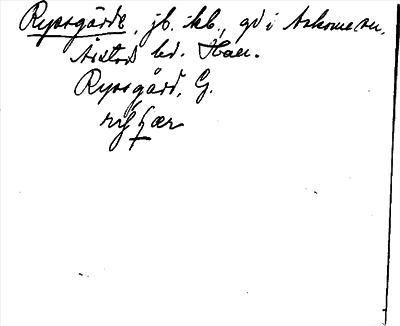 Rypsgårde, jb. kb., gd i Askome sn,
Årstad hd. Hall.
Rypsgård, G.